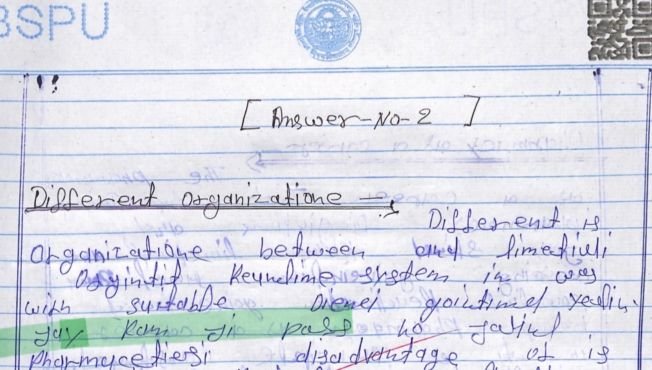 BSPU
[ Answer-No-2 ]
Different Organizatione -
Different is
Organizatione between and limetiuli
Keundime system in was
with suitable Dienel
Jay Ram Ji pass ho jariul
Pharmycetiesi disadvantage of is